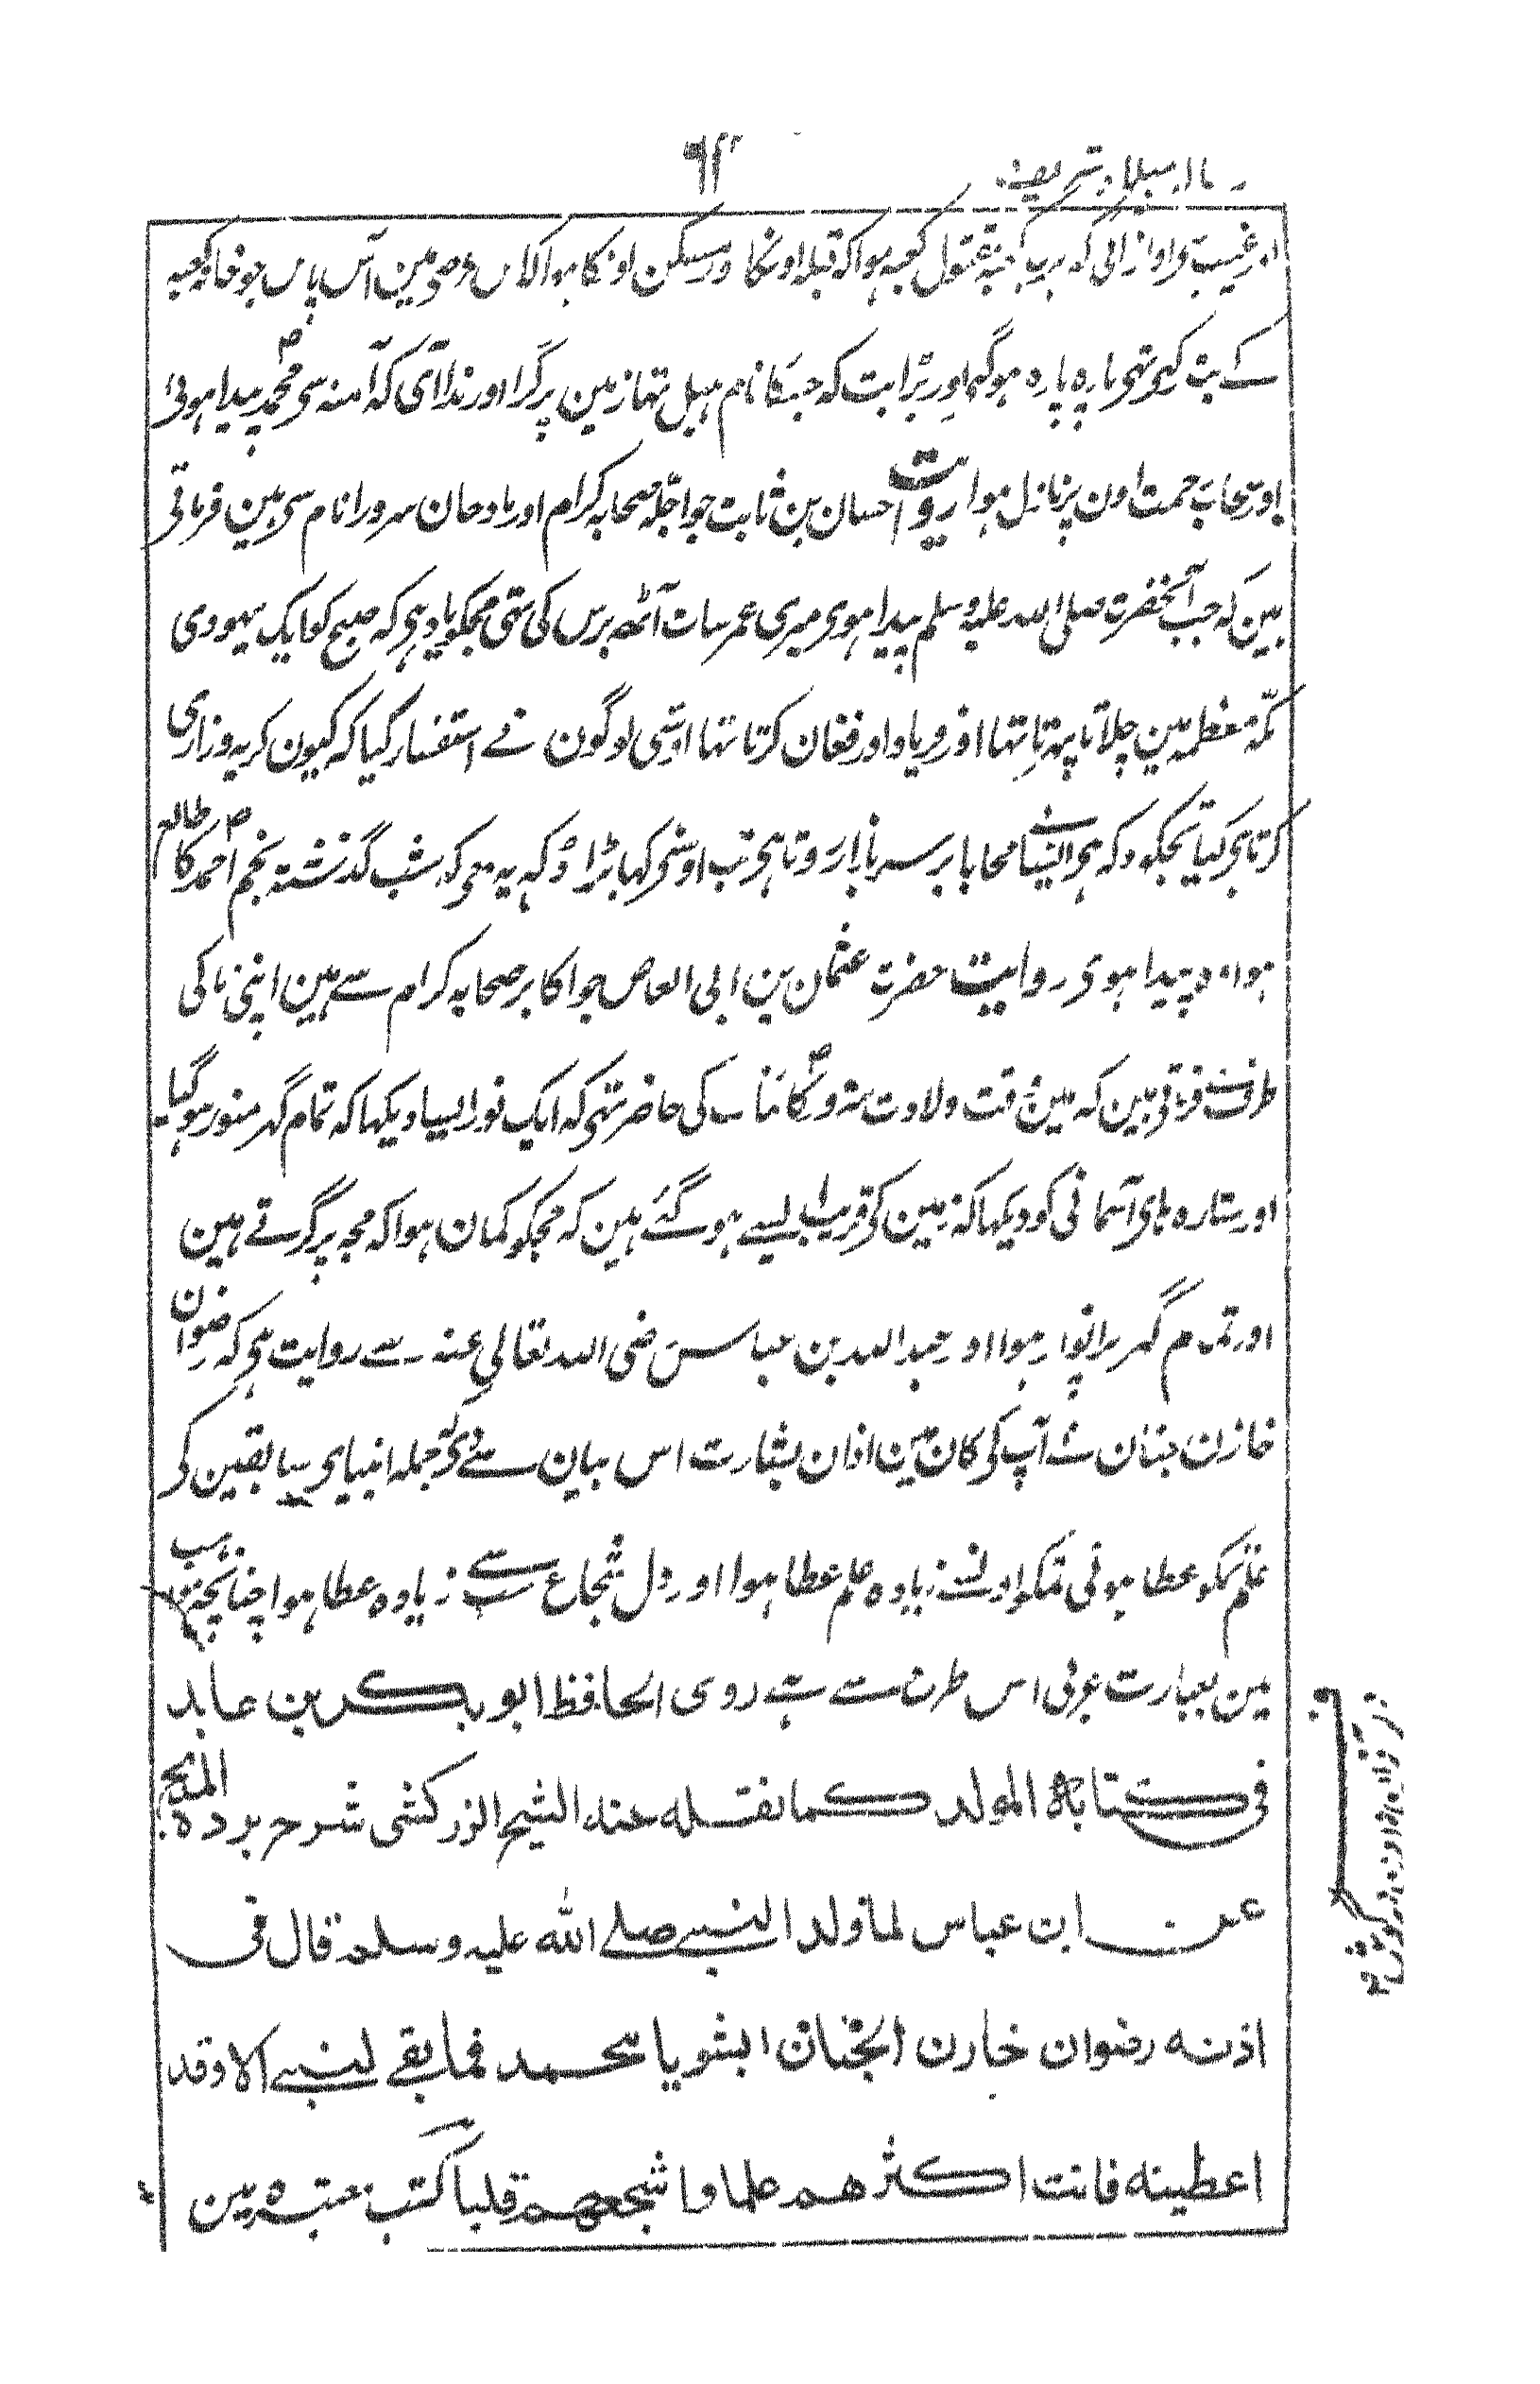 میلاد شریف
اور غیب و آواز ائی کہ برب کعبہ مقبول کعبہ ہوا کہ قبلہ اونکا ور مسکن اونکا ہوا الا اس عرصی مین آس پاس جو خانہ کعبہ
کے بت کہی تھی پارہ پارہ ہوگیا اور بڑا بت کہ جسکا نام ہبل تھا زمین پر گرا اور ندا آئی کہ آمنہ سی محمدؐ پیدا ہوئی
اور سحاب رحمت اون پر نازل ہوا روایت حسان بن ثابت جو اجلّہ صحابہ کرام اور مادحان سرور انام سی ہین فرماتی
ہین کہ جب آنحضرت صلی اللہ علیہ وسلم پیدا ہوی میری عمر سات آٹھ برس کی تہی مجکو یاد ہی کہ صبح کو ایک یہودی
مکّہ معظمہ مین چلاتا پہرتا تہا اور فریاد اور فغان کرتا تہا اوسی لوگون نے استفسار کیا کہ کیون گریہ و زاری
کرتا ہی کیا تجکو دکہ ہی ایسا محابا برسر بازار روتا ہی تب اوسنی کہا بڑا دکہ یہ ہی کہ شب گذشتہ نجم احمدؐ کا طالع
ہوا وہ پیدا ہوی روایت حضرت عثمان بن ابی العاص جو اکابر صحابہ کرام سے ہین اپنی ما کی
طرف فرماتی ہین کہ مین وقت ولادت سرور کائناتؐ کی حاضر تہی کہ ایک نور ایسا دیکہا کہ تمام گہر منور ہوگیا
اور ستارہ ہای آسمانی کو دیکہا کہ زمین کی قریب ایسے ہوگئے ہین کہ مجکو گمان ہوا کہ مجہ پر گرتے ہین
اور تمام گہر پرانوار ہوا اور عبد اللہ بن عباس رضی اللہ تعالی عنہ سے روایت ہی کہ رضوان
خازن جنان نے آپ کی کان مین اذان بشارت اس بیان سے دی کہ جملہ انبیای سابقین کی
علم تمکو عطا ہوئی تمکو اونسے زیادہ علم عطا ہوا اور دل شجاع سب سے زیادہ عطا ہوا چنانچہ مواہب
مین بعبارت عربی اس طرف سے ہے روی الحافظ ابو بکر بن عابد
فی کتابہ المولد کما نقلہ عنہ الشیخ الزرکشی شرح بردہ المدیح
عن ابن عباس لما ولد النبی صلے اللہ علیہ وسلم قال فی
اذنہ رضوان خازن الجنان ابشر یا محمد فما بقے لنبی الا وقد
اعطیتہ فانت اکثرھم علما واشجعھم قلبا کتب معتبرہ مین